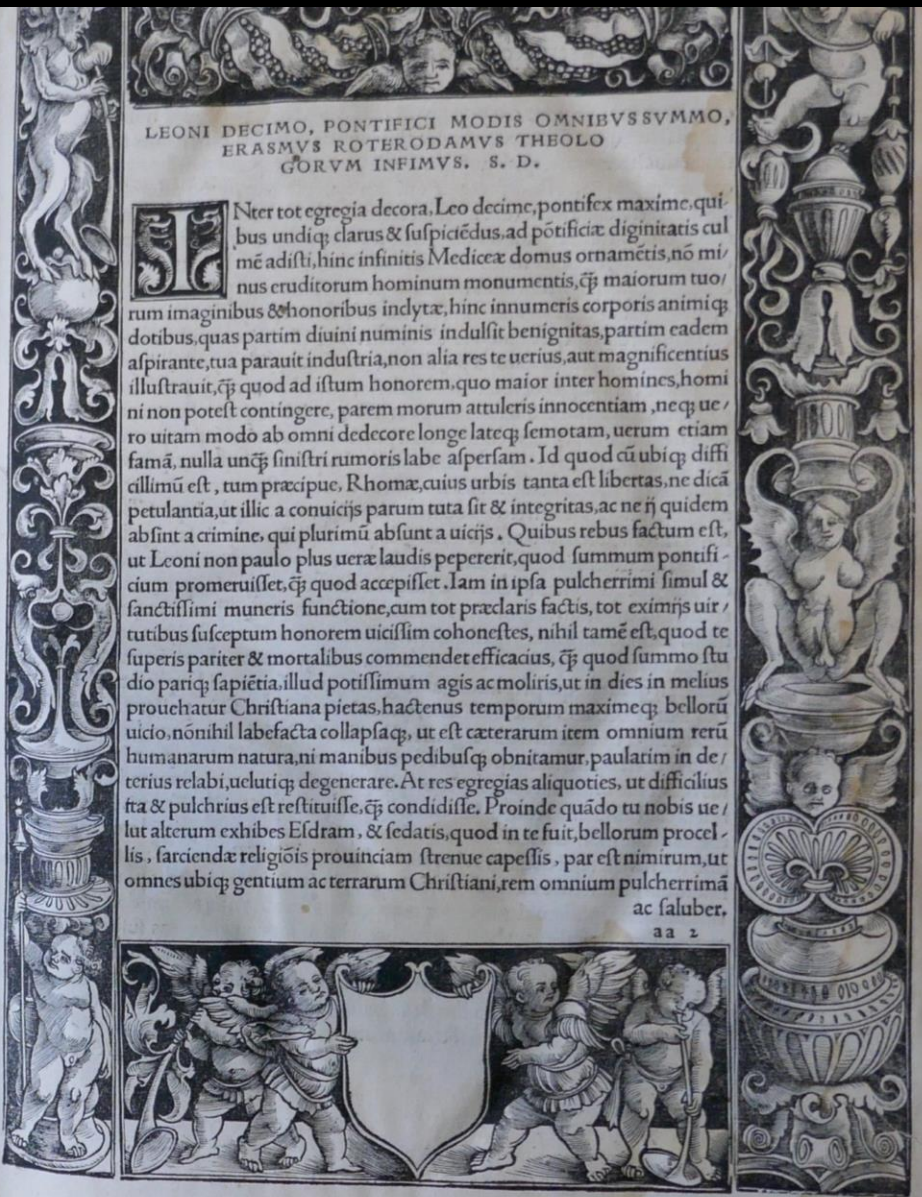 LEONI DECIMO, PONTIFICI MODIS OMNIBVS SVMMO,
ERASMVS ROTERODAMVS THEOLO
GORVM INFIMVS. S. D.
INter tot egregia decora, Leo decime, pontifex maxime, qui/
bus undiq; clarus & suspiciēdus, ad pōtificiæ diginitatis cul
mē adisti, hinc infinitis Mediceæ domus ornamētis, nō mi/
nus eruditorum hominum monumentis, q̄ꝫ maiorum tuo/
rum imaginibus & honoribus inclytæ, hinc innumeris corporis animiq;
dotibus, quas partim diuini numinis indulsit benignitas, partim eadem
aspirante, tua parauit industria, non alia res te uerius, aut magnificentius
illustrauit, q̄ꝫ quod ad istum honorem, quo maior inter homines, homi
ni non potest contingere, parem morum attuleris innocentiam, neq; ue/
ro uitam modo ab omni dedecore longe lateq; semotam, uerum etiam
famā, nulla unq̄ꝫ sinistri rumoris labe aspersam. Id quod cū ubiq; diffi
cillimū est, tum præcipue, Rhomæ, cuius urbis tanta est libertas, ne dicā
petulantia, ut illic a conuicijs parum tuta sit & integritas, ac ne ij quidem
absint a crimine, qui plurimū absunt a uicijs. Quibus rebus factum est,
ut Leoni non paulo plus ueræ laudis pepererit, quod summum pontifi-
cium promeruisset, q̄ꝫ quod accepisset. Iam in ipsa pulcherrimi simul &
sanctissimi muneris functione, cum tot præclaris factis, tot eximijs uir/
tutibus susceptum honorem uicissim cohonestes, nihil tamē est, quod te
superis pariter & mortalibus commendet efficacius, q̄ꝫ quod summo stu
dio pariq; sapiētia, illud potissimum agis ac moliris, ut in dies in melius
prouehatur Christiana pietas, hactenus temporum maximeq; bellorū
uicio, nōnihil labefacta collapsaq;, ut est cæterarum item omnium rerū
humanarum natura, ni manibus pedibusq; obnitamur, paulatim in de/
terius relabi, uelutiq; degenerare. At res egregias aliquoties, ut difficilius
ita & pulchrius est restituisse, q̄ꝫ condidisse. Proinde quādo tu nobis ue/
lut alterum exhibes Esdram, & sedatis, quod in te fuit, bellorum procel-
lis, sarciendæ religiōis prouinciam strenue capessis, par est nimirum, ut
omnes ubiq; gentium ac terrarum Christiani, rem omnium pulcherrimā
ac saluber,
aa 2